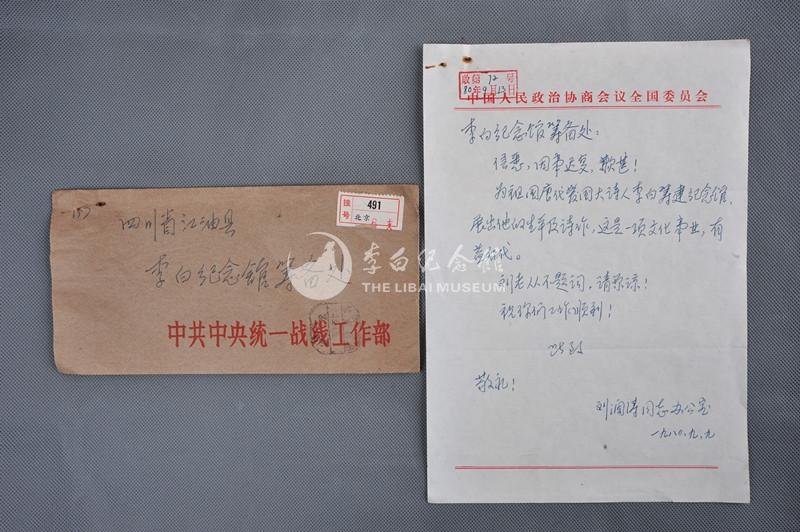 四川省江油县
李白纪念馆筹备处
挂号 491
北京
中共中央统一战线工作部
李白纪念馆
THE LIBAI MUSEUM
收第 12 号
80年9月13日
中国人民政治协商会议全国委员会
李白纪念馆筹备处：
信悉，因事迟复，歉甚！
为祖国唐代爱国大诗人李白筹建纪念馆，
展出他的生平及诗作，这是一项文化事业，有
益后代。
刘老从不题词，请原谅！
祝你们工作顺利！
此致
敬礼！
刘澜涛同志办公室
一九八〇、九、九